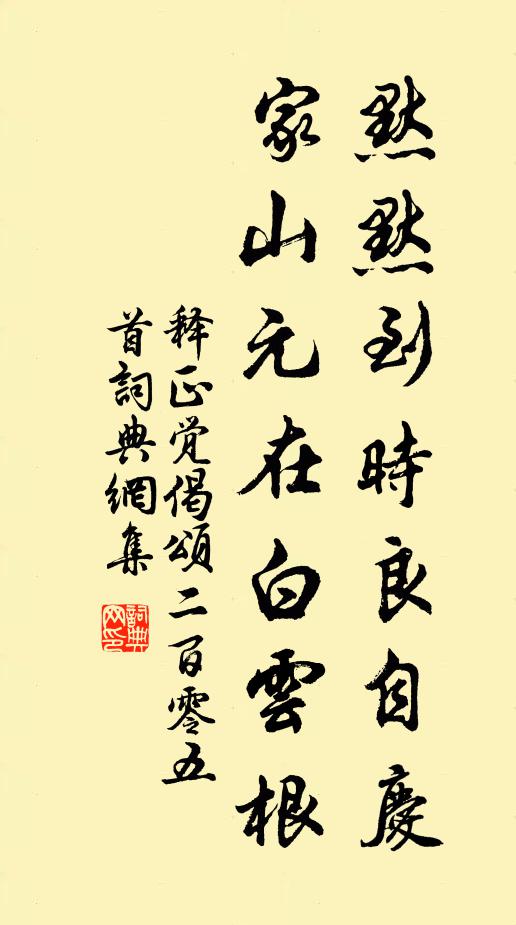 默默到時良自慶
家山元在白雲根
释正覚偈頌二百零五
首詞典網集
詞典
网印